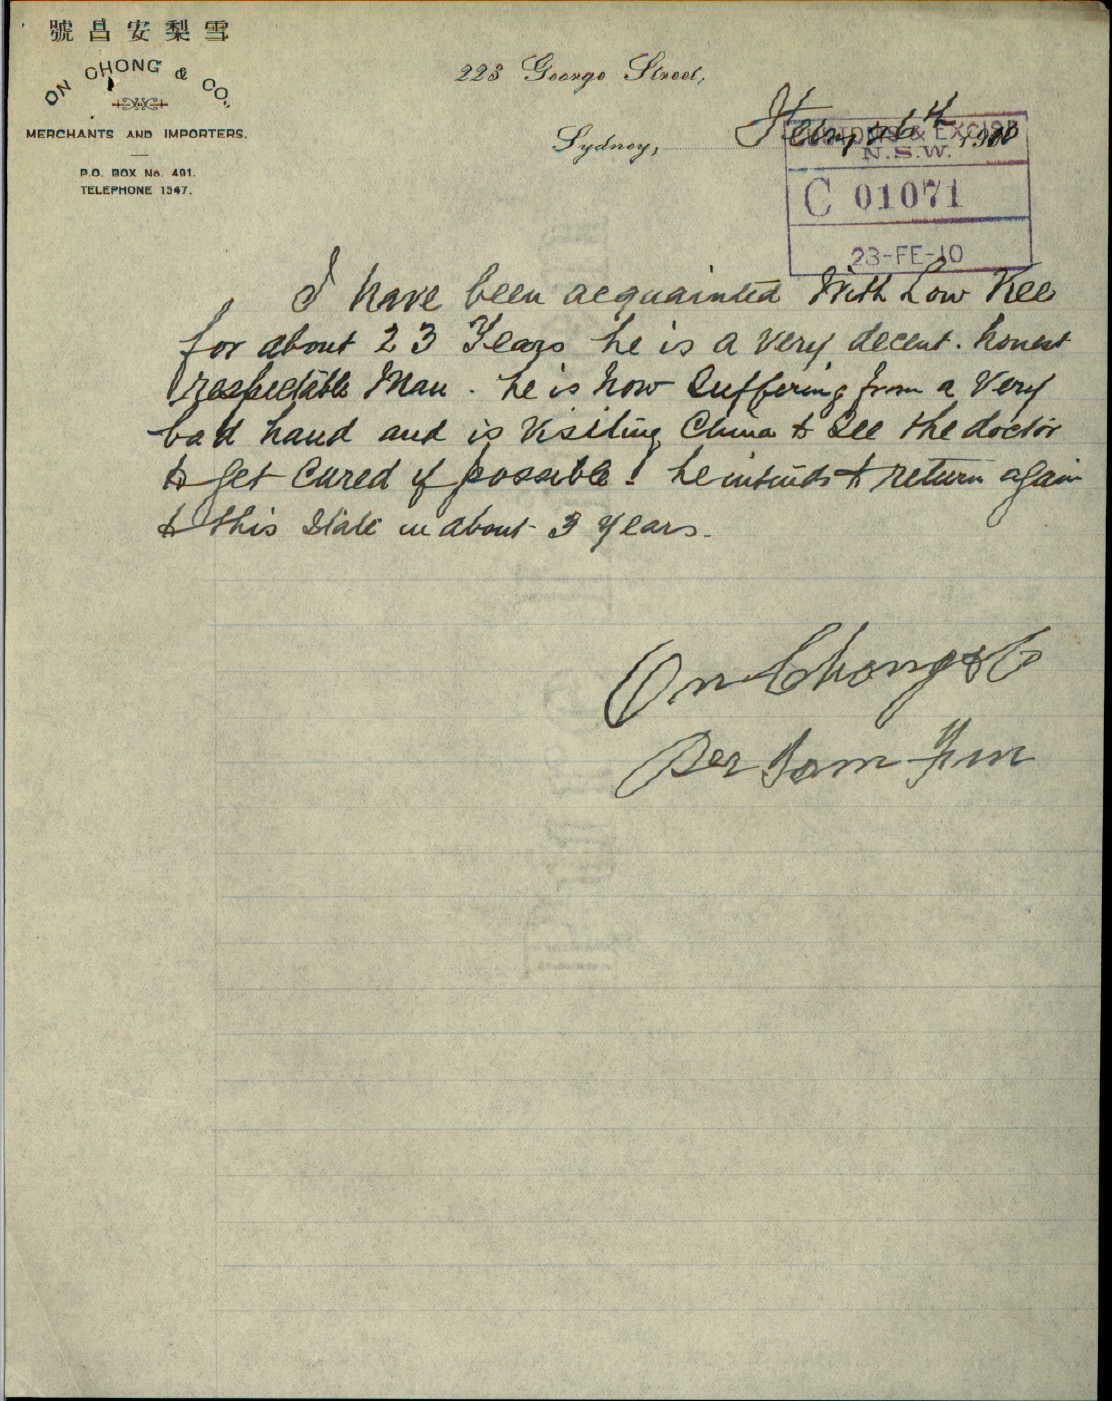 號昌安梨雪
ON CHONG & CO.,
MERCHANTS AND IMPORTERS.
P.O. BOX No. 491.
TELEPHONE 1347.
223 George Street,
Sydney, 16th 1910
CUSTOMS & EXCISE
N.S.W.
C 01071
23-FE-10
I have been acquainted With Low Kee
for about 23 Years he is a very decent. honest
respectable Man. he is now Suffering from a Very
bad hand and is Visiting China to See the doctor
to get Cured if possible! he intends to return again
to this State in about 3 years.
On Chong & Co
Per Sam